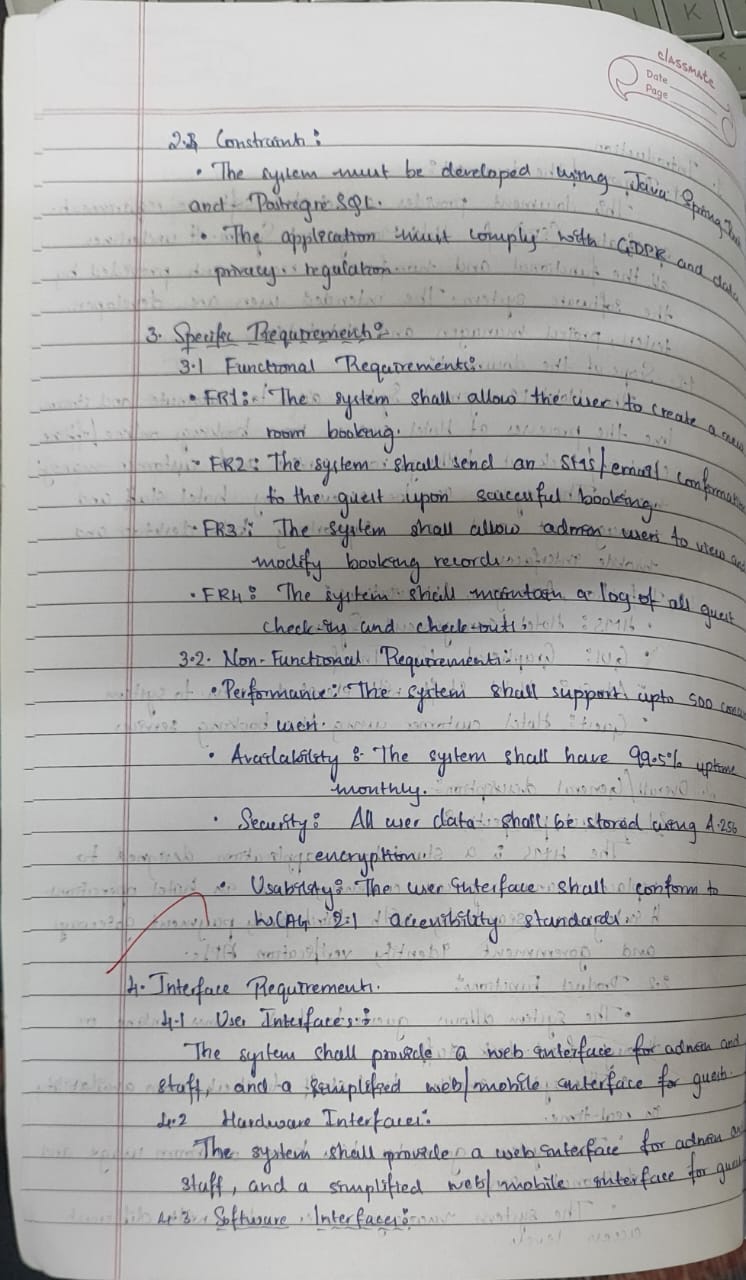 classmate
Date
Page
2.3 Constraints:
• The system must be developed using Java Spring
and PostregreSQL.
• The application must comply with GDPR and data
privacy regulation
3. Specific Requirements:
3.1 Functional Requirements:
• FR1: The system shall allow the user to create a new
room booking.
• FR2: The system shall send an SMS/email
to the guest upon successful booking.
• FR3: The system shall allow admin users to view
modify booking records
• FR4: The system shall maintain a log of all guest
check-ins and check-outs.
3.2. Non-Functional Requirements:
• Performance: The system shall support upto 500
users.
• Availability: The system shall have 99.5% uptime
monthly.
• Security: All user data shall be stored using A-256
encryption.
• Usability: The user interface shall conform to
WCAG 2.1 accessibility standards.
4. Interface Requirements.
4.1 User Interfaces:
The system shall provide a web interface for admin and
staff, and a simplified web/mobile interface for guest.
4.2 Hardware Interfaces:
The system shall provide a web interface for admin
staff, and a simplified web/mobile interface for
4.3. Software Interfaces: